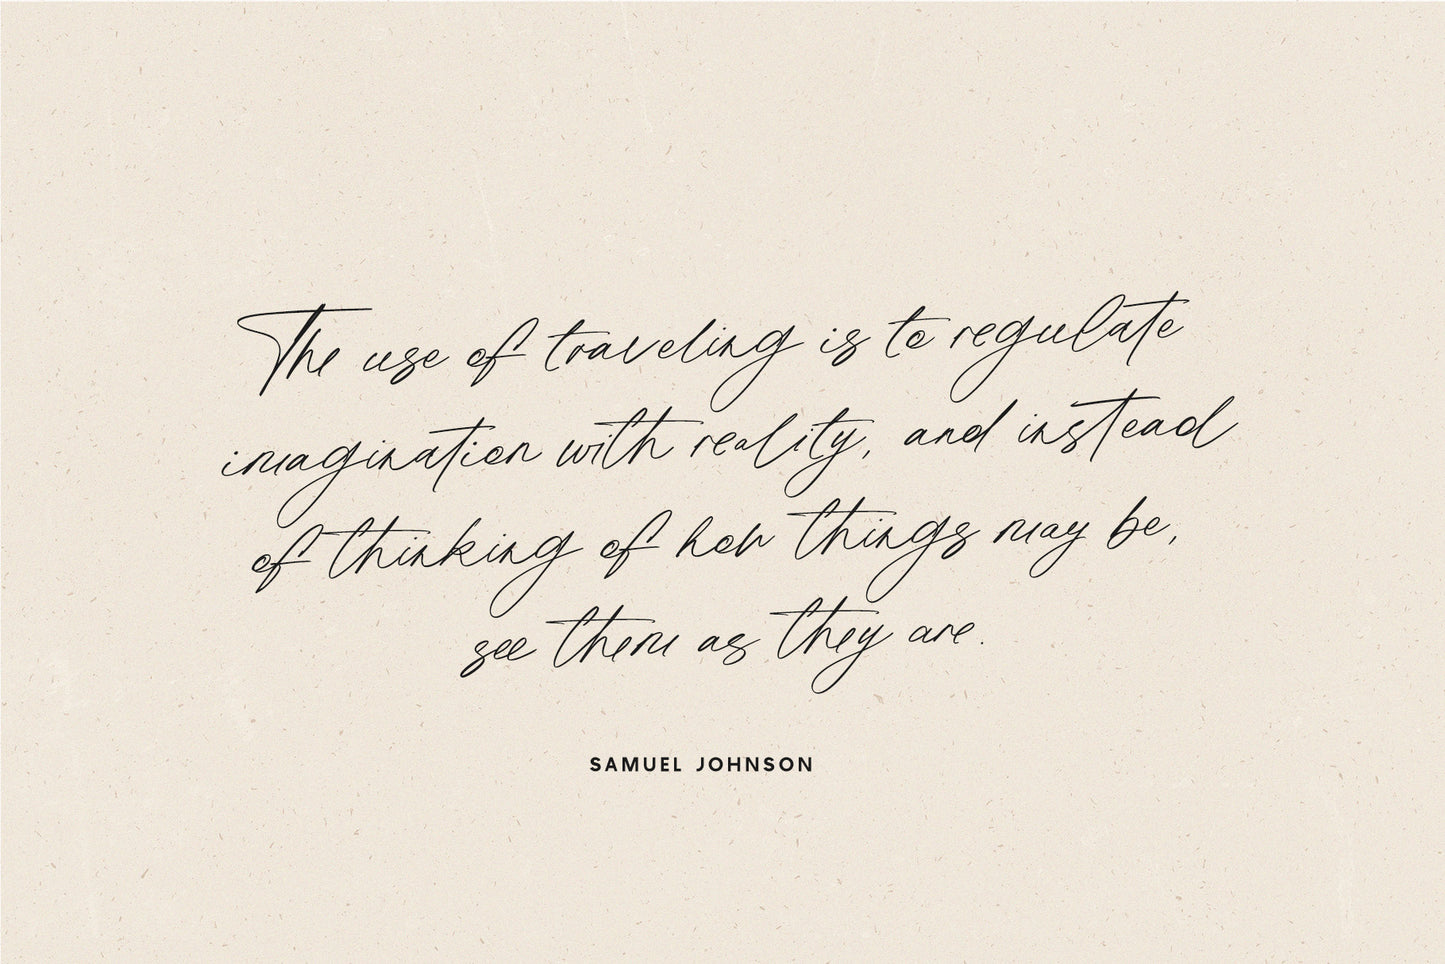 The use of traveling is to regulate
imagination with reality, and instead
of thinking of how things may be,
see them as they are.
SAMUEL JOHNSON